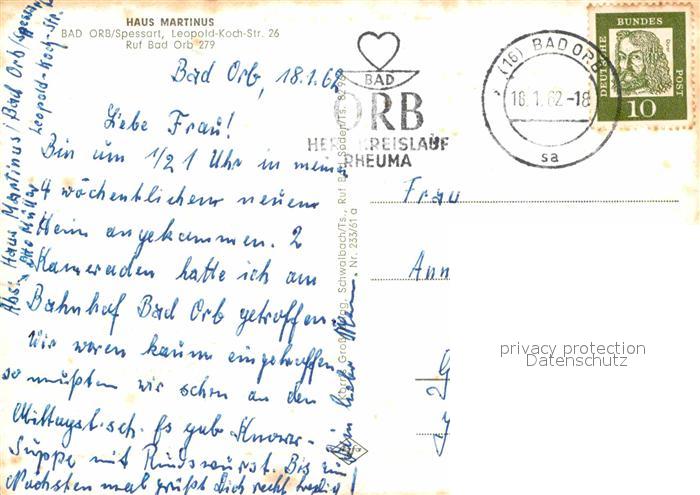 HAUS MARTINUS
BAD ORB/Spessart, Leopold-Koch-Str. 26
Ruf Bad Orb 279
Bad Orb, 18.1.62
Liebe Frau!
Bin um 1/2 1 Uhr in mein
4 wöchentlichen neuen
Heim angekommen. 2
Kameraden hatte ich am
Bahnhof Bad Orb getroffen.
Wir waren kaum eingetroffen
so mußten wir schon an den
Mittagstisch. Es gab Knorr-
Suppe mit Rindswurst. Bis zum
Nächsten mal grüßt Dich recht herzlich!
Dein lieber Mann.
Abs. Haus Martinus / Bad Orb/Spessart
Otto Müller Leopold-Koch-Str.
BAD
ORB
HERZ KREISLAUF
RHEUMA
(16) BAD ORB
18.1.62-18
sa
DEUTSCHE BUNDESPOST
10
Nr. 233/61 a
Frau
Ann
G
J
privacy protection
Datenschutz